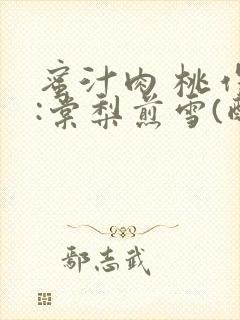 蜜汁肉桃作
:棠梨煎雪(
鄢志武